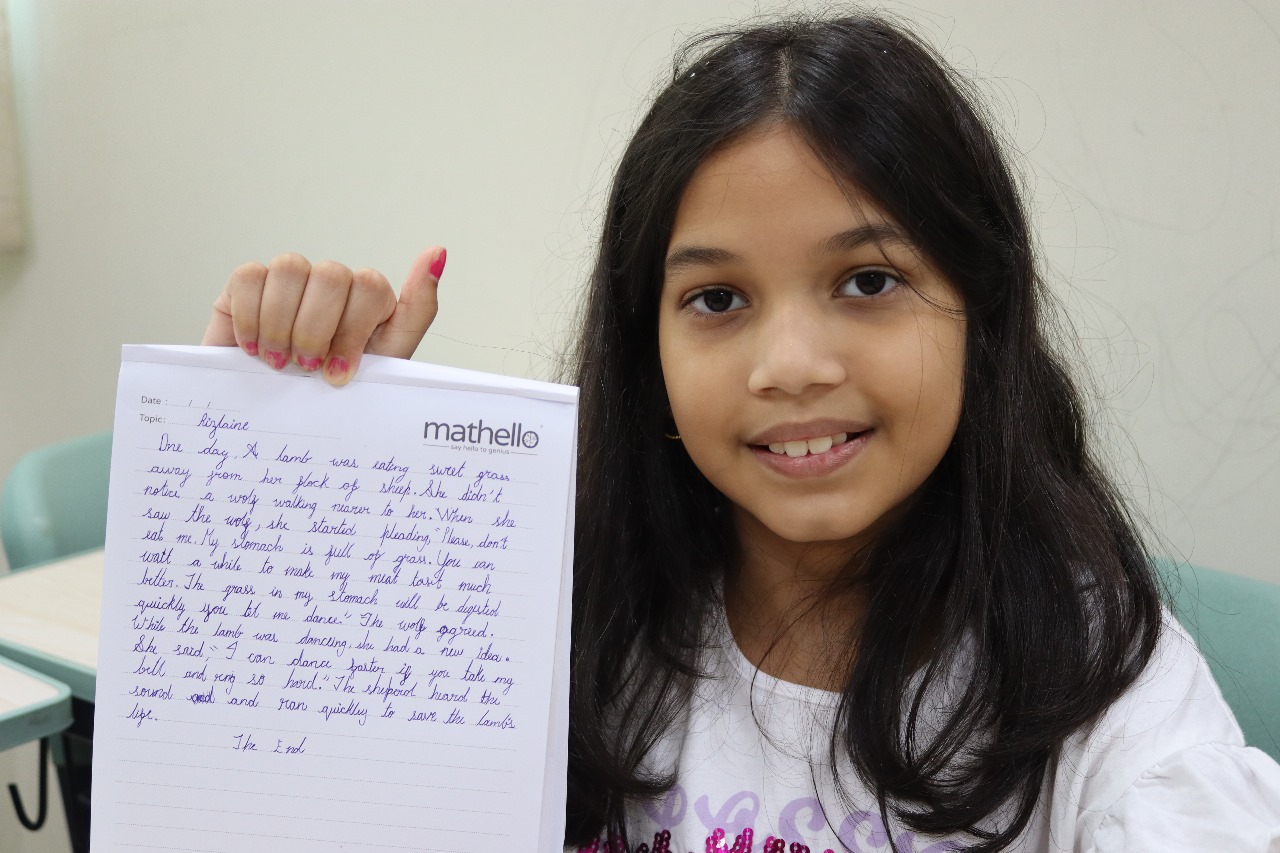 Date : / /
Topic: Rizlaine
mathello
say hello to genius
One day, A lamb was eating sweet grass
away from her flock of sheep. She didn't
notice a wolf walking nearer to her. When she
saw the wolf, she started pleading, "Please, don't
eat me. My stomach is full of grass. You can
watt a while to make my meat tast much
better. The grass in my stomach will be digsted
quickly you let me dance." The wolf agreed.
While the lamb was dancing, she had a new idea.
She said, " I can dance faster if you take my
bell and ring so hard." The sheperd heard the
sound and ran quickly to save the lamb's
life.
The End